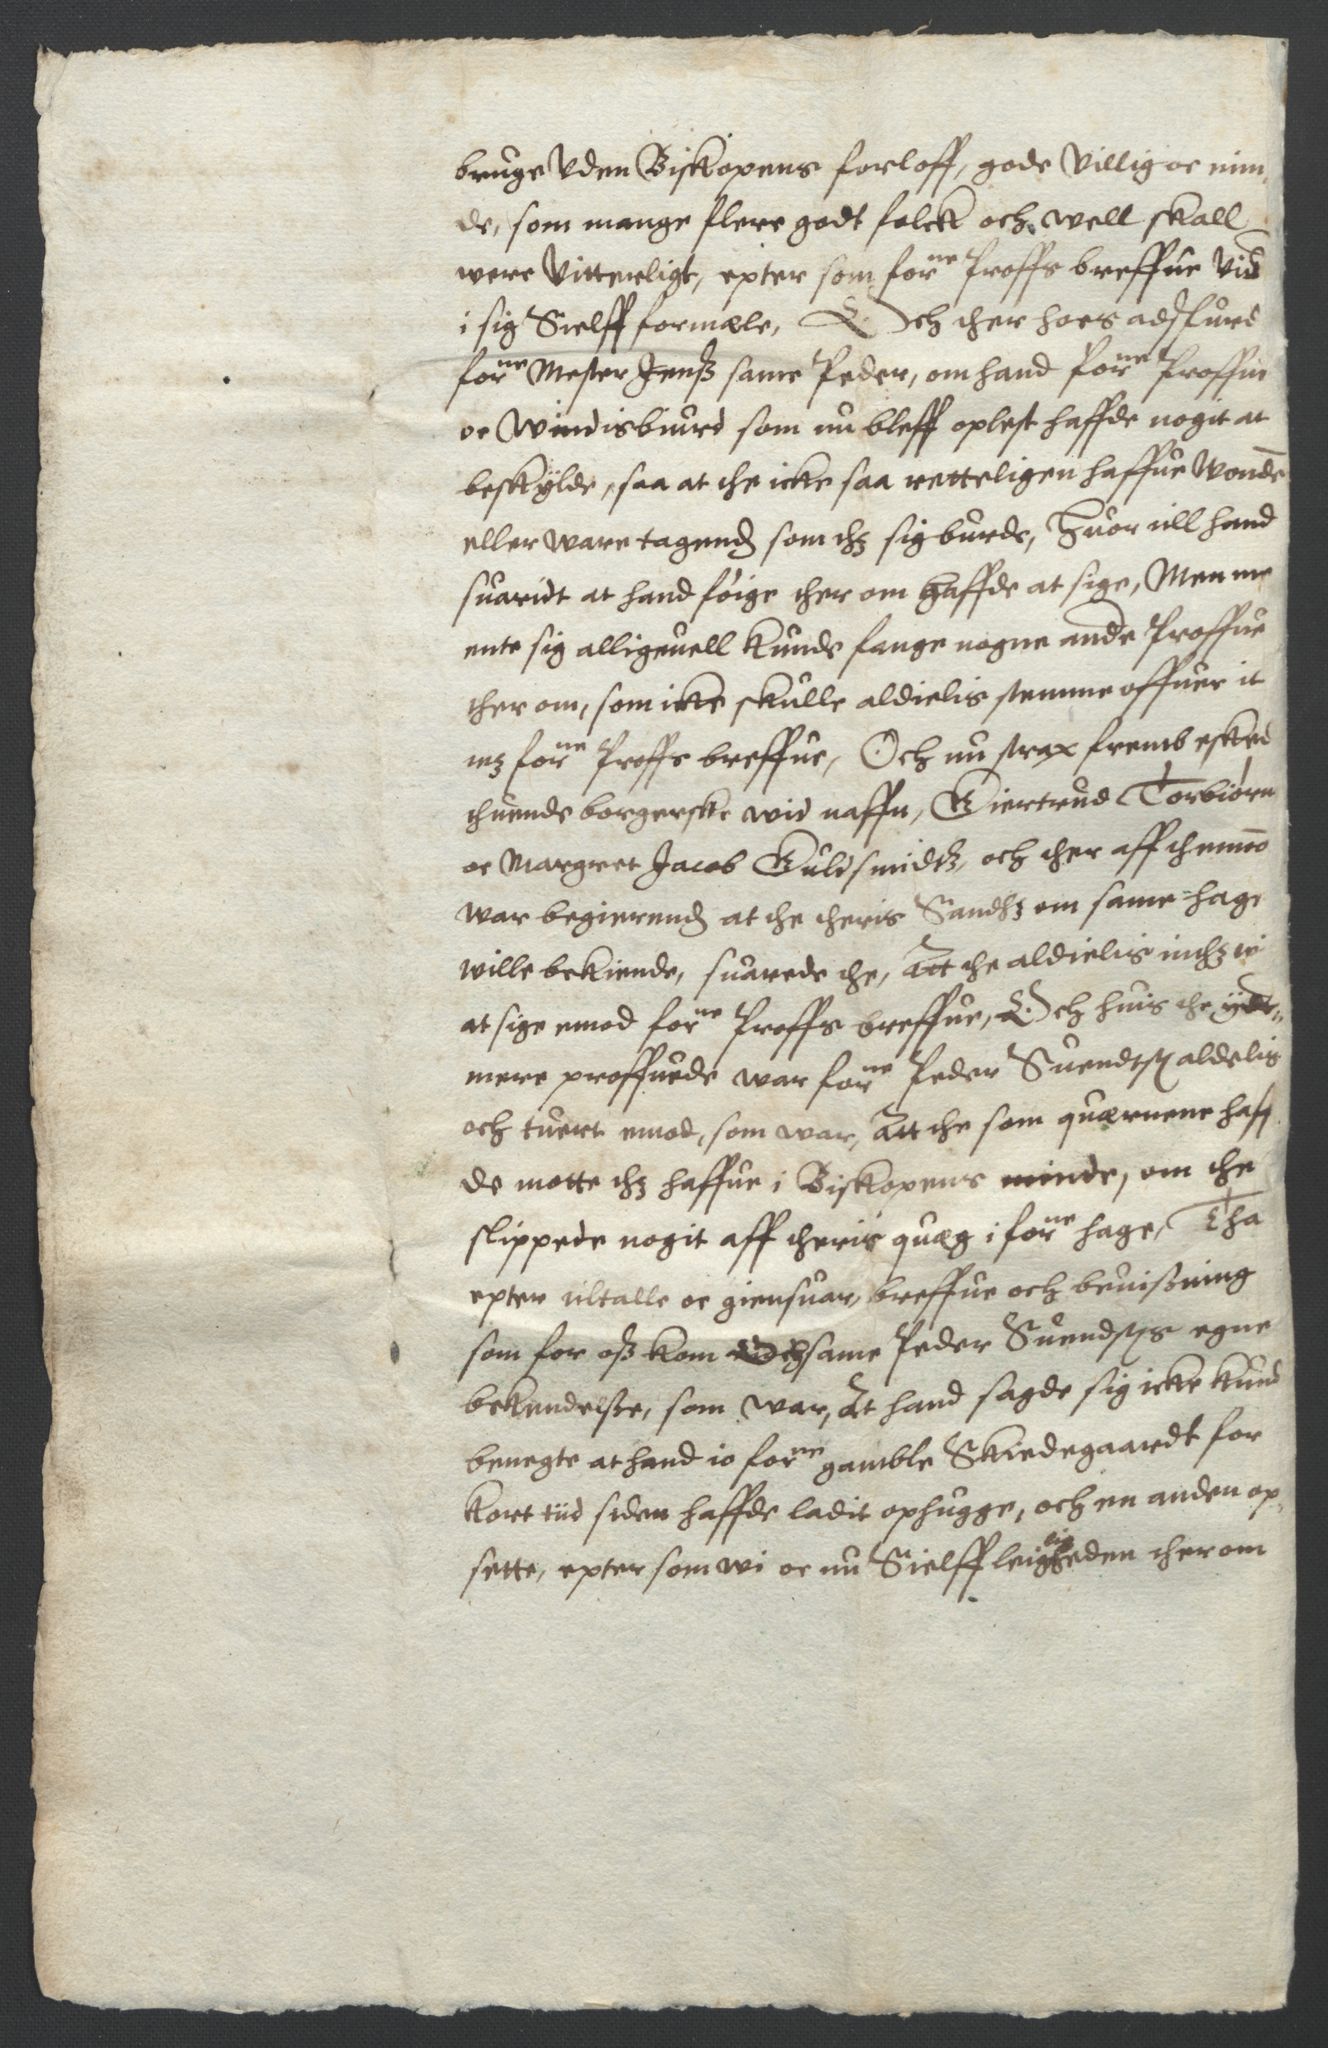 bruge Uden Biskopens forloff, gode Villig oc min„
de, som mange flere godt folck och well skall
were Vitterligt, epter som forne Proffs breffue Vid
i sig Sielff formæle, Och ther hoes adspurd
forne Mester Jenß same Peder, om hand forne Proffui
oc Windisburd som nu bleff oplest haffde nogit at
beskylde, saa at the icke saa retteligen haffue Wonde
eller ware tagend som thz sig burde, Huor till hand
suaridt at hand föige ther om haffde at sige, Men me
ente sig alligeuell kunde fange nogne ande Proffue
ther om, som icke skulle aldielis stemme offuer it
mz forne Proffs breffue, Och nu strax fremb esked
thuende borgerske wid naffn, Giertrud Torbiörn
oc Margret Jacob Guldsmidtz, och ther aff themmo
war begierend at the theris Sandhz om same hage
wille bekiende, suarede the, Att the aldielis inthz
at sige emod forne Proffs breffue, Och huis the ydt„
mere proffuede war forne Peder Suendtß aldelis
och tuert emod, som war, Att the som quærnene haff
de motte thz haffue i Biskopens minde, om the
slippede nogit aff theris quæg i forne hage, Tha
epter tiltalle oc giensuar, breffue och beuißning
som for oß kom och same Peder Suendsøs egne
bekendelße, som war, At hand sagde sig icke kund
benegte at hand io forne gamble Skiedegaardt for
kort tiid siden haffde ladit ophugge, och en anden op„
sette, epter som wi oc nu Sielff leiligheden ther om